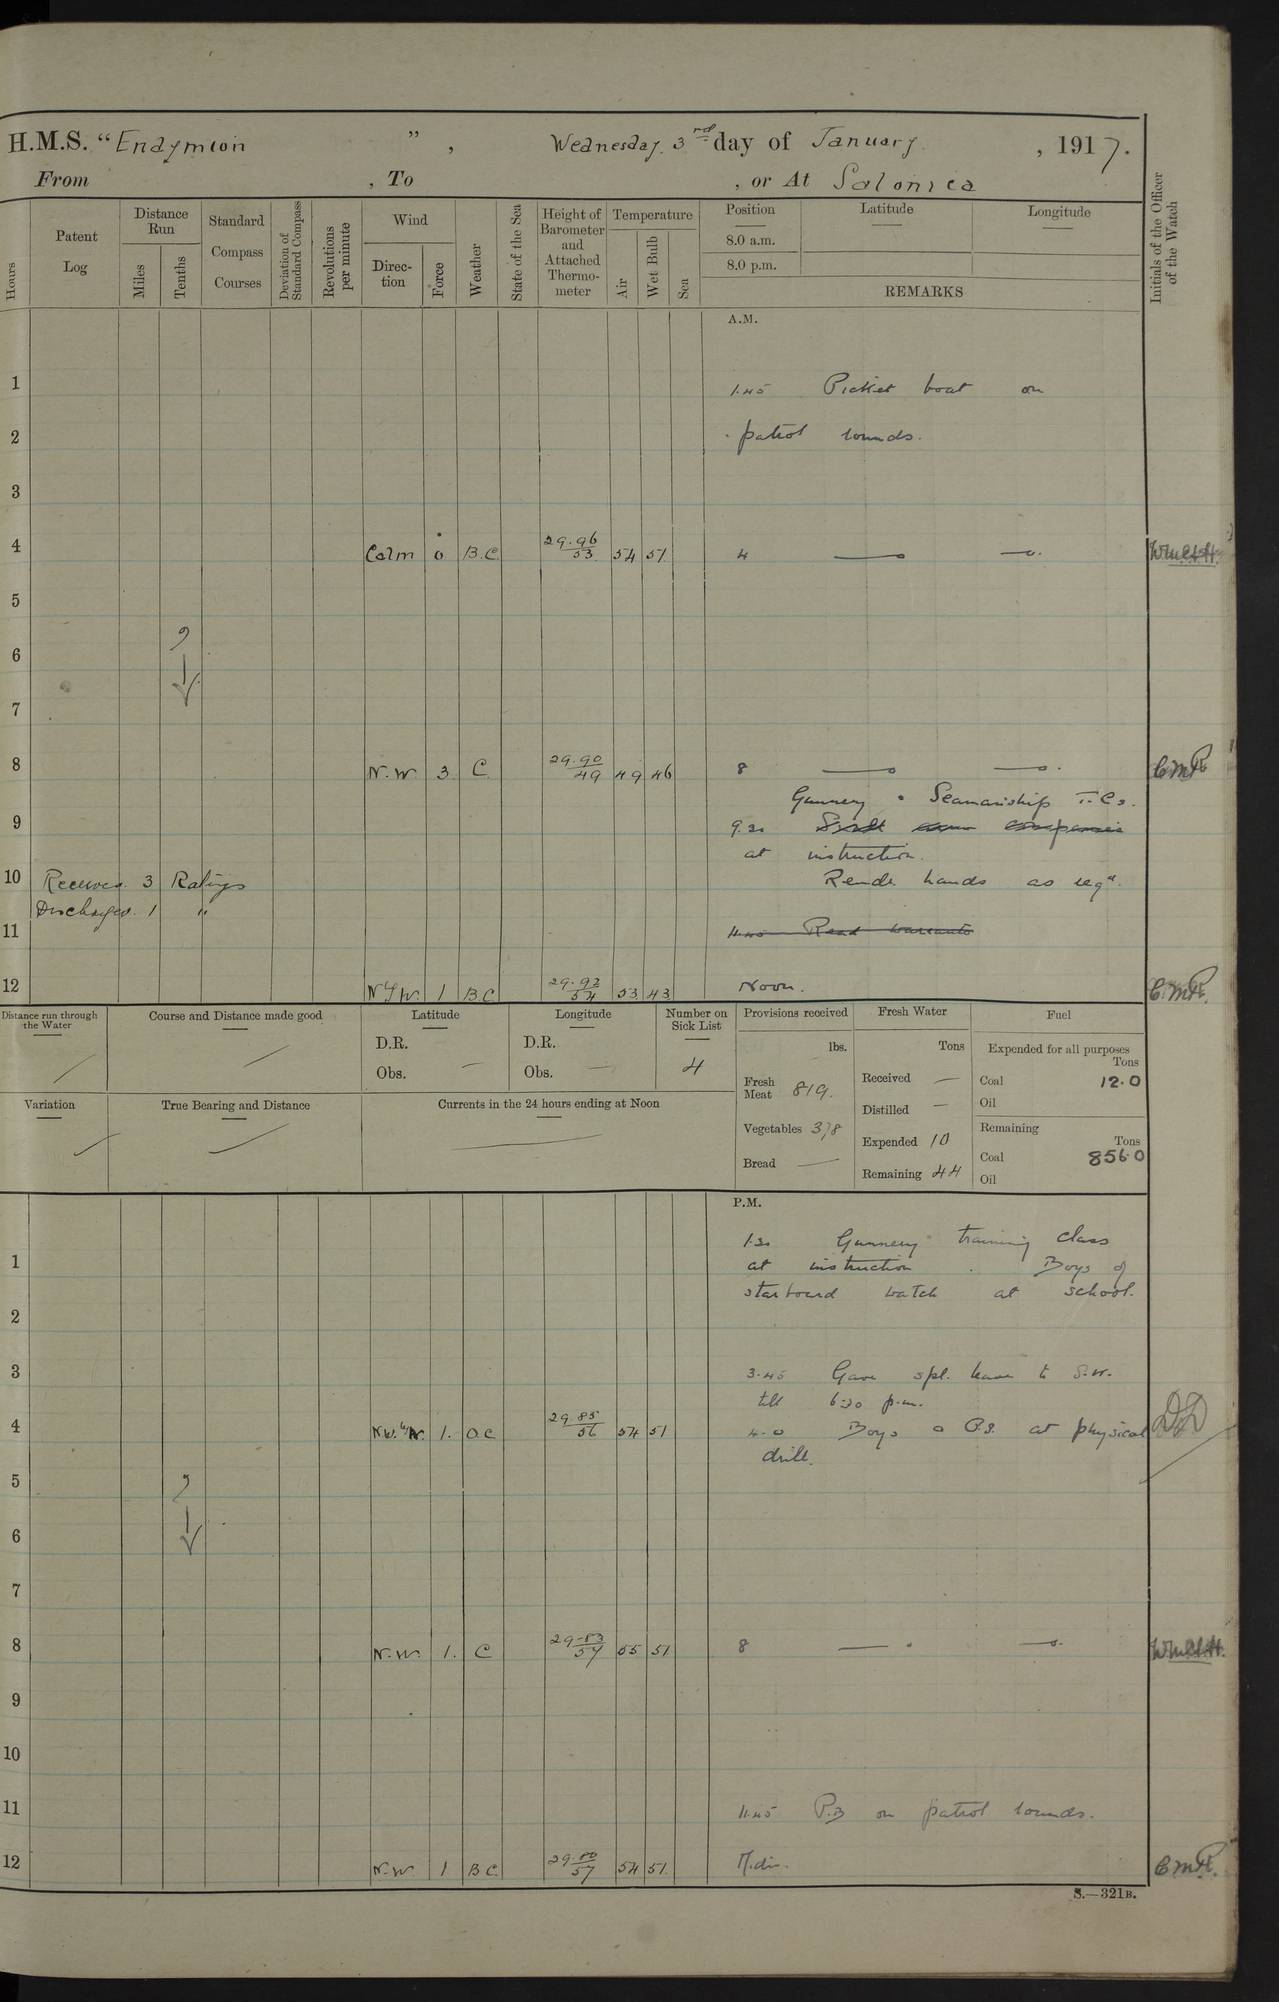 H.M.S. "Endymion", Wednesday 3rd day of January, 1917.
From , To , or At Salonica
Hours
Patent Log
Distance Run
Miles
Tenths
Standard Compass Courses
Deviation of Standard Compass
Revolutions per minute
Wind
Direc-tion
Force
Weather
State of the Sea
Height of Barometer and Attached Thermo-meter
Temperature
Air
Wet Bulb
Sea
Position
8.0 a.m.
8.0 p.m.
Latitude
Longitude
REMARKS
Initials of the Officer of the Watch
A.M.
1 1.45 Picket boat on
2 patrol rounds.
3
4 Calm 0 B.C. 29.96 53 54 51 4
5
6
7
8 N.W. 3 C 29.90 49 49 46 8 C.M.R.
Gunnery Seamanship T.C.s.
9 9.30
at instruction.
10 Received 3 Ratings hands as reqd.
Discharged 1 "
11 11.40 Read Warrants
12 N by W. 1 B.C. 29.92 54 53 43 Noon. C.M.R.
Distance run through the Water
Course and Distance made good
Latitude
D.R.
Obs.
Longitude
D.R.
Obs.
Number on Sick List
4
Variation
True Bearing and Distance
Currents in the 24 hours ending at Noon
Provisions received
lbs.
Fresh Meat 819.
Vegetables 378
Bread
Fresh Water
Tons
Received
Distilled
Expended 10
Remaining 44
Fuel
Expended for all purposes
Tons
Coal 12.0
Oil
Remaining
Tons
Coal 856.0
Oil
P.M.
1.30 Gunnery training class
1 at instruction. Boys of
starboard watch at school.
2
3 3.45 Gave spl. leave to
till 6.30 p.m.
4 N.W. by N. 1. O.C. 29.85 56 54 51 4.0 Boys at physical
drill.
5
6
7
8 N.W. 1. C 29.83 57 55 51 8
9
10
11 11.45 P.B on patrol rounds.
12 N.W 1 B.C. 29.80 57 54 51 M.dn. C.M.R.
S.—321B.